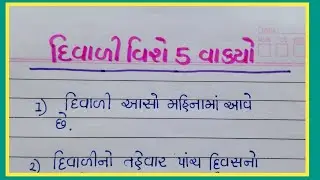 દિવાળી વિશે 5 વાક્યો
1) દિવાળી આસો મહિનામાં આવે
છે.
2) દિવાળીનો તહેવાર પાંચ દિવસનો